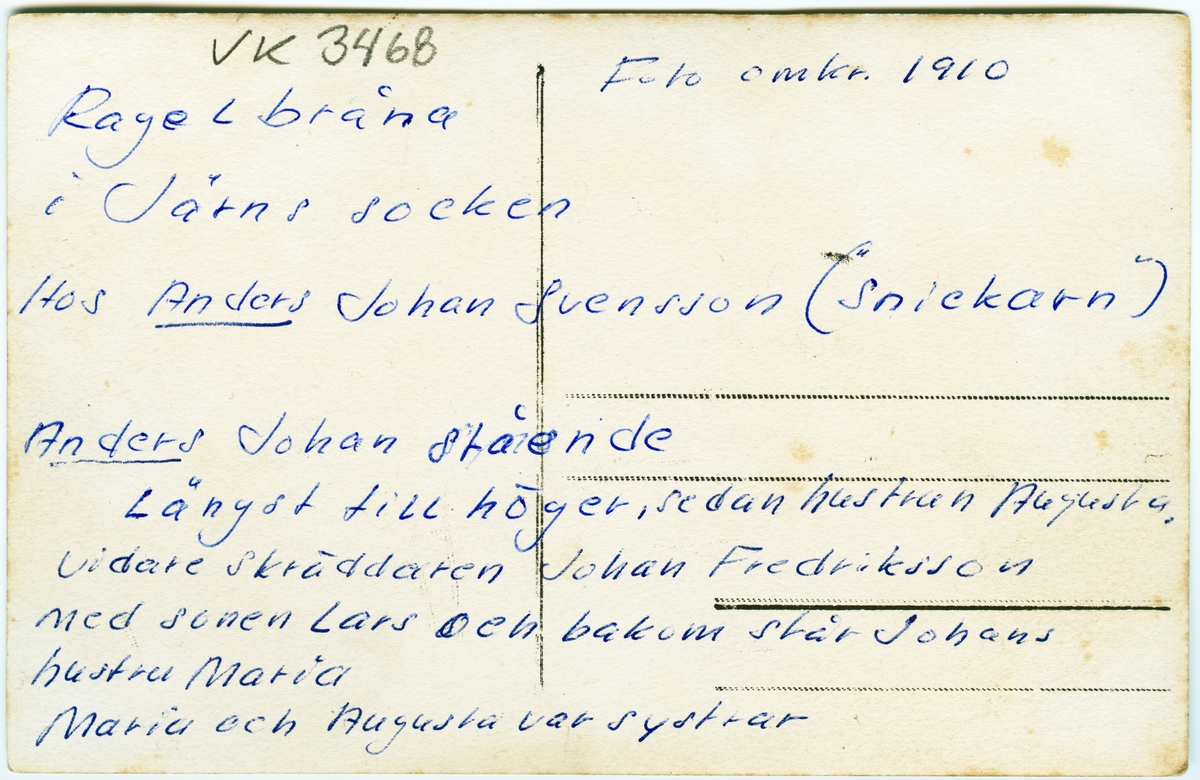 VK 3468
Foto omkr. 1910
Ragelbråna
i Järns socken
Hos Anders Johan Svensson ("Snickarn")
Anders Johan stående
Längst till höger, sedan hustrun Augusta,
vidare skräddaren Johan Fredriksson
med sonen Lars och bakom står Johans
hustru Maria
Maria och Augusta var systrar